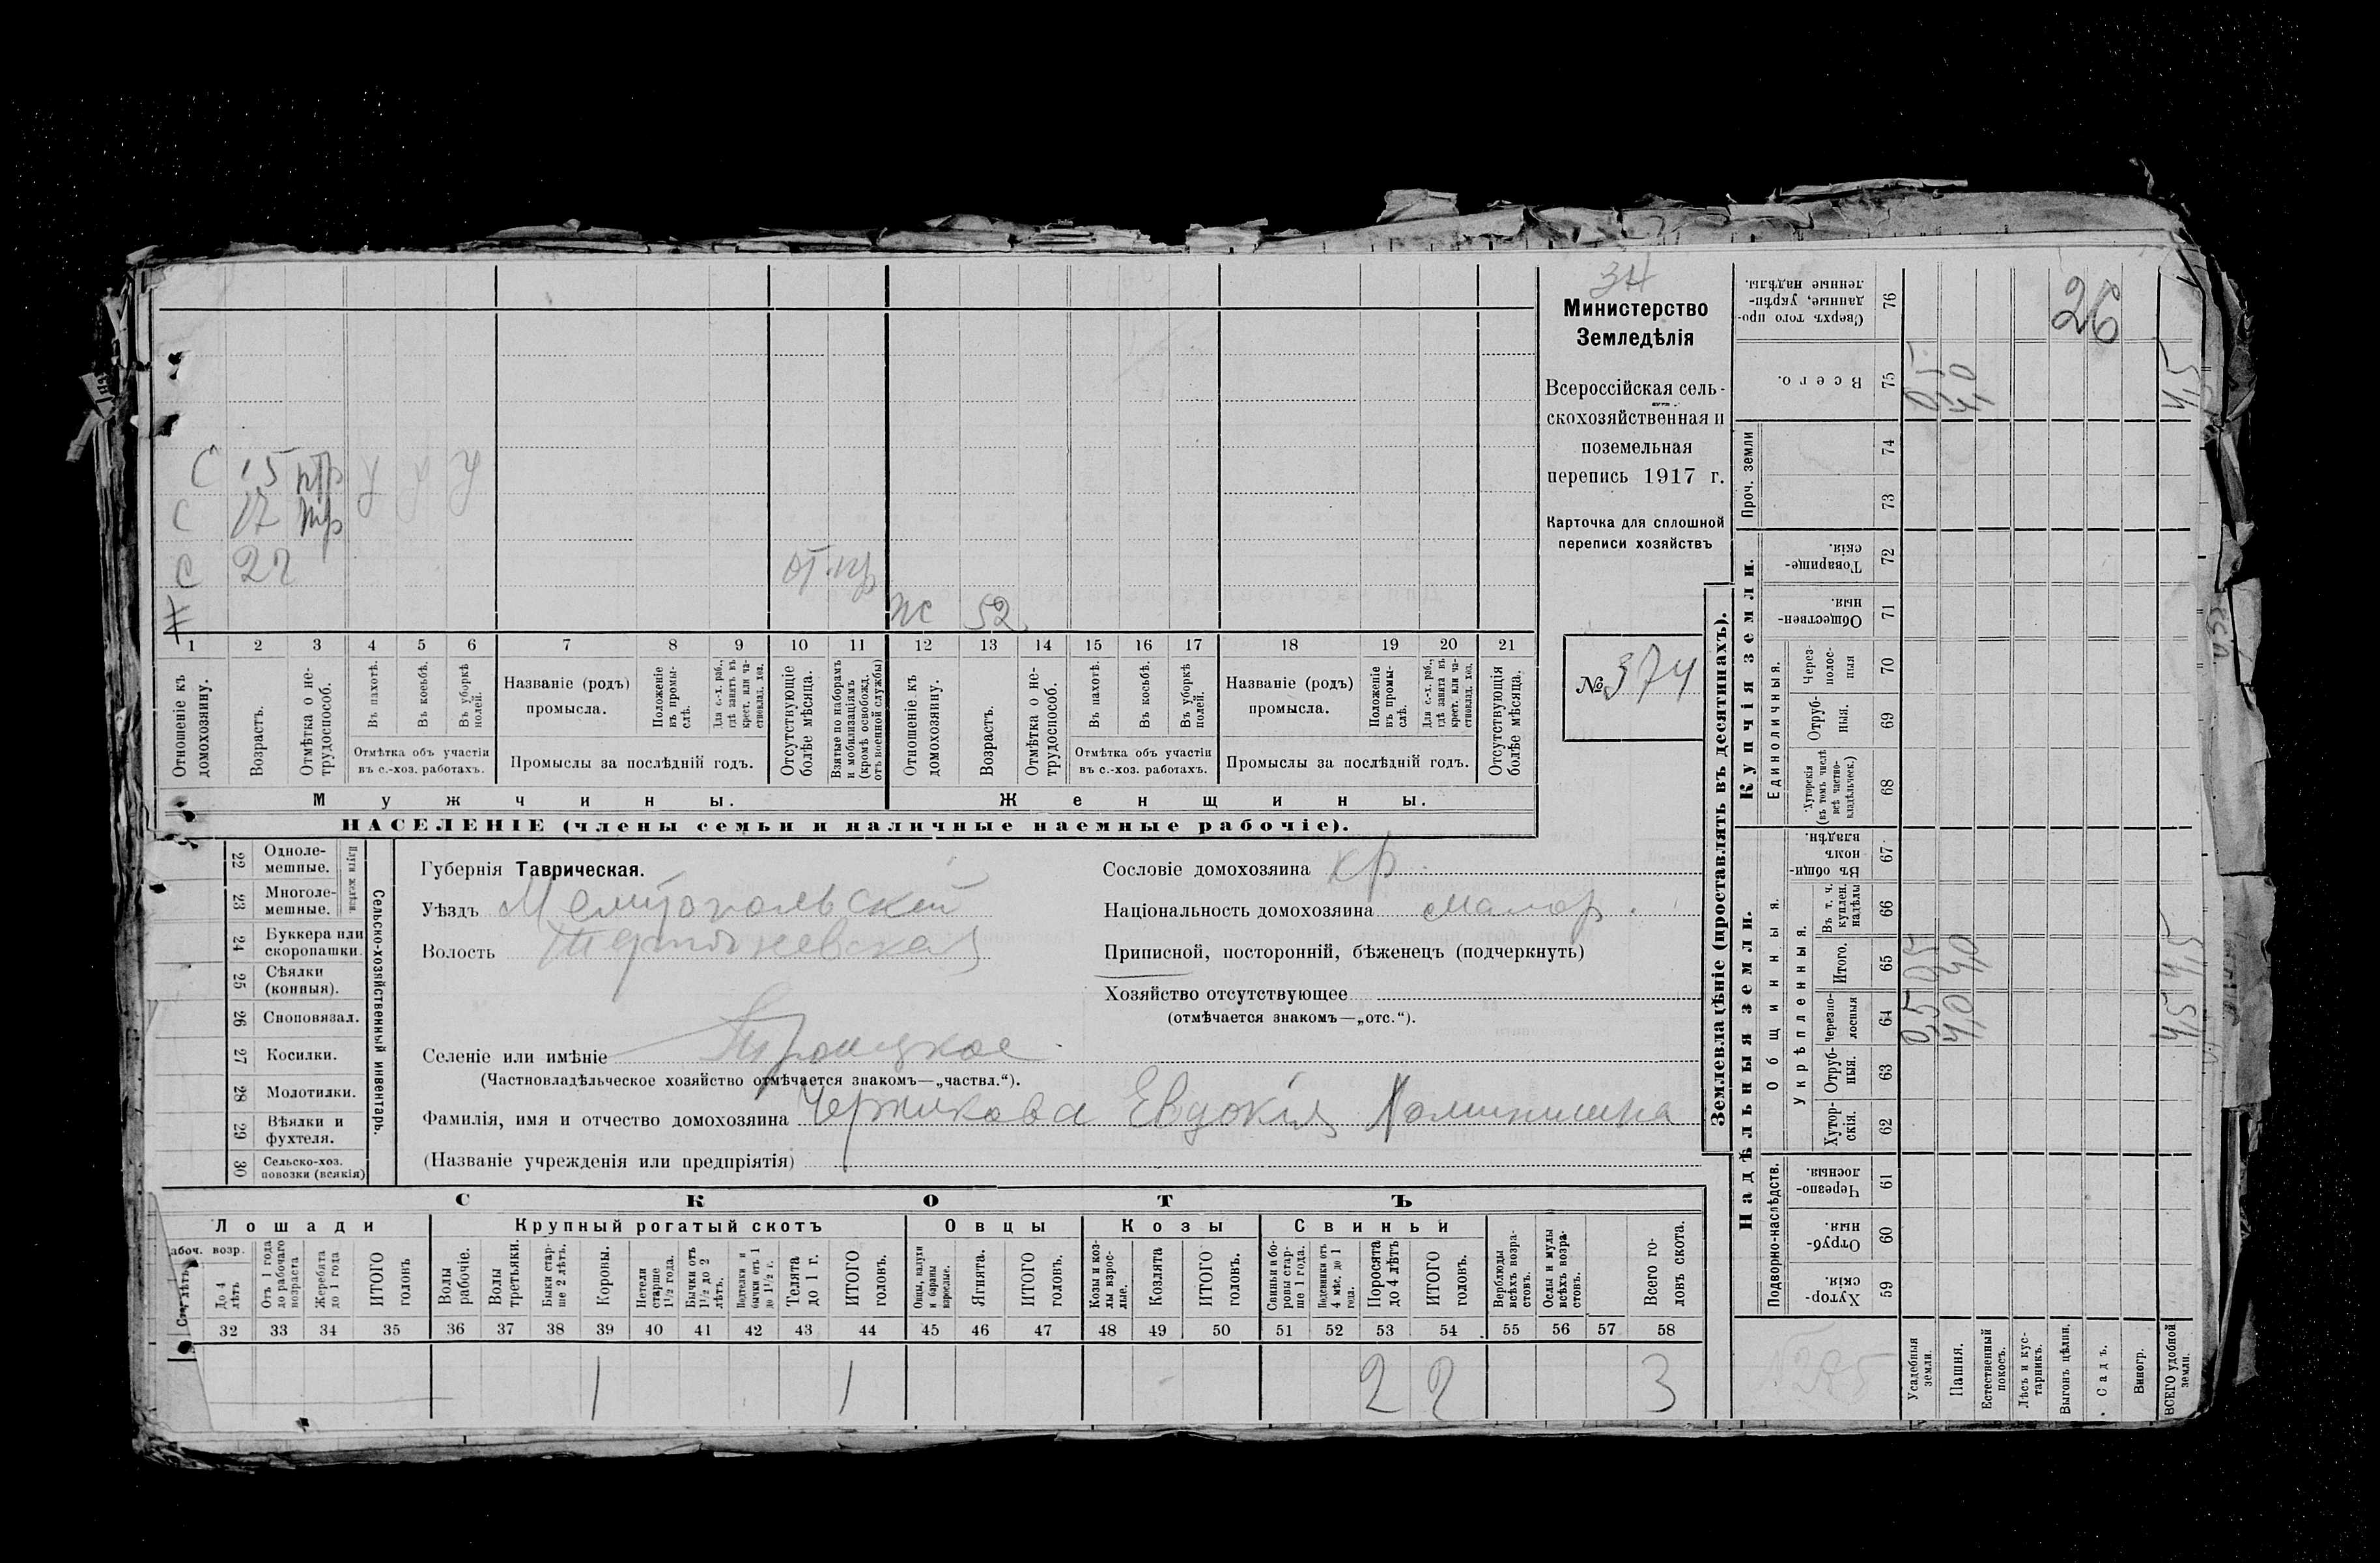 34
Министерство
Земледѣлія
Всероссійская сель-
скохозяйственная и
поземельная
перепись 1917 г.
Карточка для сплошной
переписи хозяйствъ
№ 374
С 15 у у у
С 17
С 22
52
1 2 3 4 5 6 7 8 9 10 11 12 13 14 15 16 17 18 19 20 21
Отношеніе къ домохозяину.
Возрастъ.
Отмѣтка о не-трудоспособ.
Въ пахотѣ.
Въ косьбѣ.
Въ уборкѣ полей.
Отмѣтка объ участіи
въ с.-хоз. работахъ.
Названіе (родъ)
промысла.
Положеніе въ промы-слѣ.
Для с.-х. раб., гдѣ занятъ въ крест. или ча-стновлад. хоз.
Промыслы за послѣдній годъ.
Отсутствующіе болѣе мѣсяца.
Взятые по наборамъ и мобилизаціямъ (кромѣ освобожд. отъ военной службы)
Отношеніе къ домохозяину.
Возрастъ.
Отмѣтка о не-трудоспособ.
Въ пахотѣ.
Въ косьбѣ.
Въ уборкѣ полей.
Отмѣтка объ участіи
въ с.-хоз. работахъ.
Названіе (родъ)
промысла.
Положеніе въ промы-слѣ.
Для с.-х. раб., гдѣ занята въ крест. или ча-стновлад. хоз.
Промыслы за послѣдній годъ.
Отсутствующія болѣе мѣсяца.
Мужчины.
Женщины.
НАСЕЛЕНІЕ (члены семьи и наличные наемные рабочіе).
22 Одноле-мешные.
23 Многоле-мешные.
24 Буккера или скоропашки.
25 Сѣялки (конныя).
26 Сноповязал.
27 Косилки.
28 Молотилки.
29 Вѣялки и фухтеля.
30 Сельско-хоз. повозки (всякія)
Сельско-хозяйственный инвентарь.
Губернія Таврическая.
Уѣздъ Мелитопольскій
Волость
Селеніе или имѣніе Троицкое
(Частновладѣльческое хозяйство отмѣчается знакомъ—„частвл.“).
Фамилія, имя и отчество домохозяина Черникова Евдокія
(Названіе учрежденія или предпріятія)
Сословіе домохозяина кр.
Національность домохозяина малор.
Приписной, посторонній, бѣженецъ (подчеркнуть)
Хозяйство отсутствующее
(отмѣчается знакомъ—„отс.“).
СКОТЪ
Лошади
Крупный рогатый скотъ
Овцы
Козы
Свиньи
До 4 лѣтъ
Отъ 1 года до рабочаго возраста
Жеребята до 1 года
ИТОГО головъ
Волы рабочіе.
Волы третьяки.
Быки стар-ше 2 лѣтъ.
Коровы.
Нетели старше 1½ года.
Бычки отъ 1½ до 2 лѣтъ.
Подтелки и бычки отъ 1 до 1½ г.
Телята до 1 г.
ИТОГО головъ.
Овцы, валухи и бараны взрослые.
Ягнята.
ИТОГО головъ.
Козы и коз-лы взрос-лые.
Козлята
ИТОГО головъ.
Свиньи и бо-ровы стар-ше 1 года.
Подсвинки отъ 4 мѣс. до 1 года.
Поросята до 4 лѣтъ
ИТОГО головъ.
Верблюды всѣхъ возра-стовъ.
Ослы и мулы всѣхъ возра-стовъ.
Всего го-ловъ скота.
32 33 34 35 36 37 38 39 40 41 42 43 44 45 46 47 48 49 50 51 52 53 54 55 56 57 58
1 1 2 2 3
Землевладѣніе (проставлять въ десятинахъ).
Надѣльныя земли.
Купчія земли.
Подворно-наслѣдств.
Общинныя.
Укрѣпленныя.
Единоличныя.
Проч. земли
Хутор-скія. 59
Отруб-ныя. 60
Черезпо-лосныя 61
Хутор-скія. 62
Отруб-ныя. 63
Черезпо-лосныя 64
Итого. 65
Въ т. ч. куплен. надѣлы 66
Въ общин-номъ владѣн. 67
Хуторскія (въ томъ числѣ всѣ частно-владѣльческ.) 68
Отруб-ныя. 69
Через-полос-ныя 70
Обществен-ныя. 71
Товарище-скія. 72
73
74
Всего. 75
Сверхъ того про-данные, укрѣп-ленные надѣлы. 76
Усадебныя земли. 0,5 0,5 0,5
Пашня. 4,0 4,0 4,0
Естественный покосъ.
Лѣсъ и кус-тарникъ.
Выгонъ цѣлин.
Садъ.
Виногр.
ВСЕГО удобной земли. 4,5 4,5 4,5
26